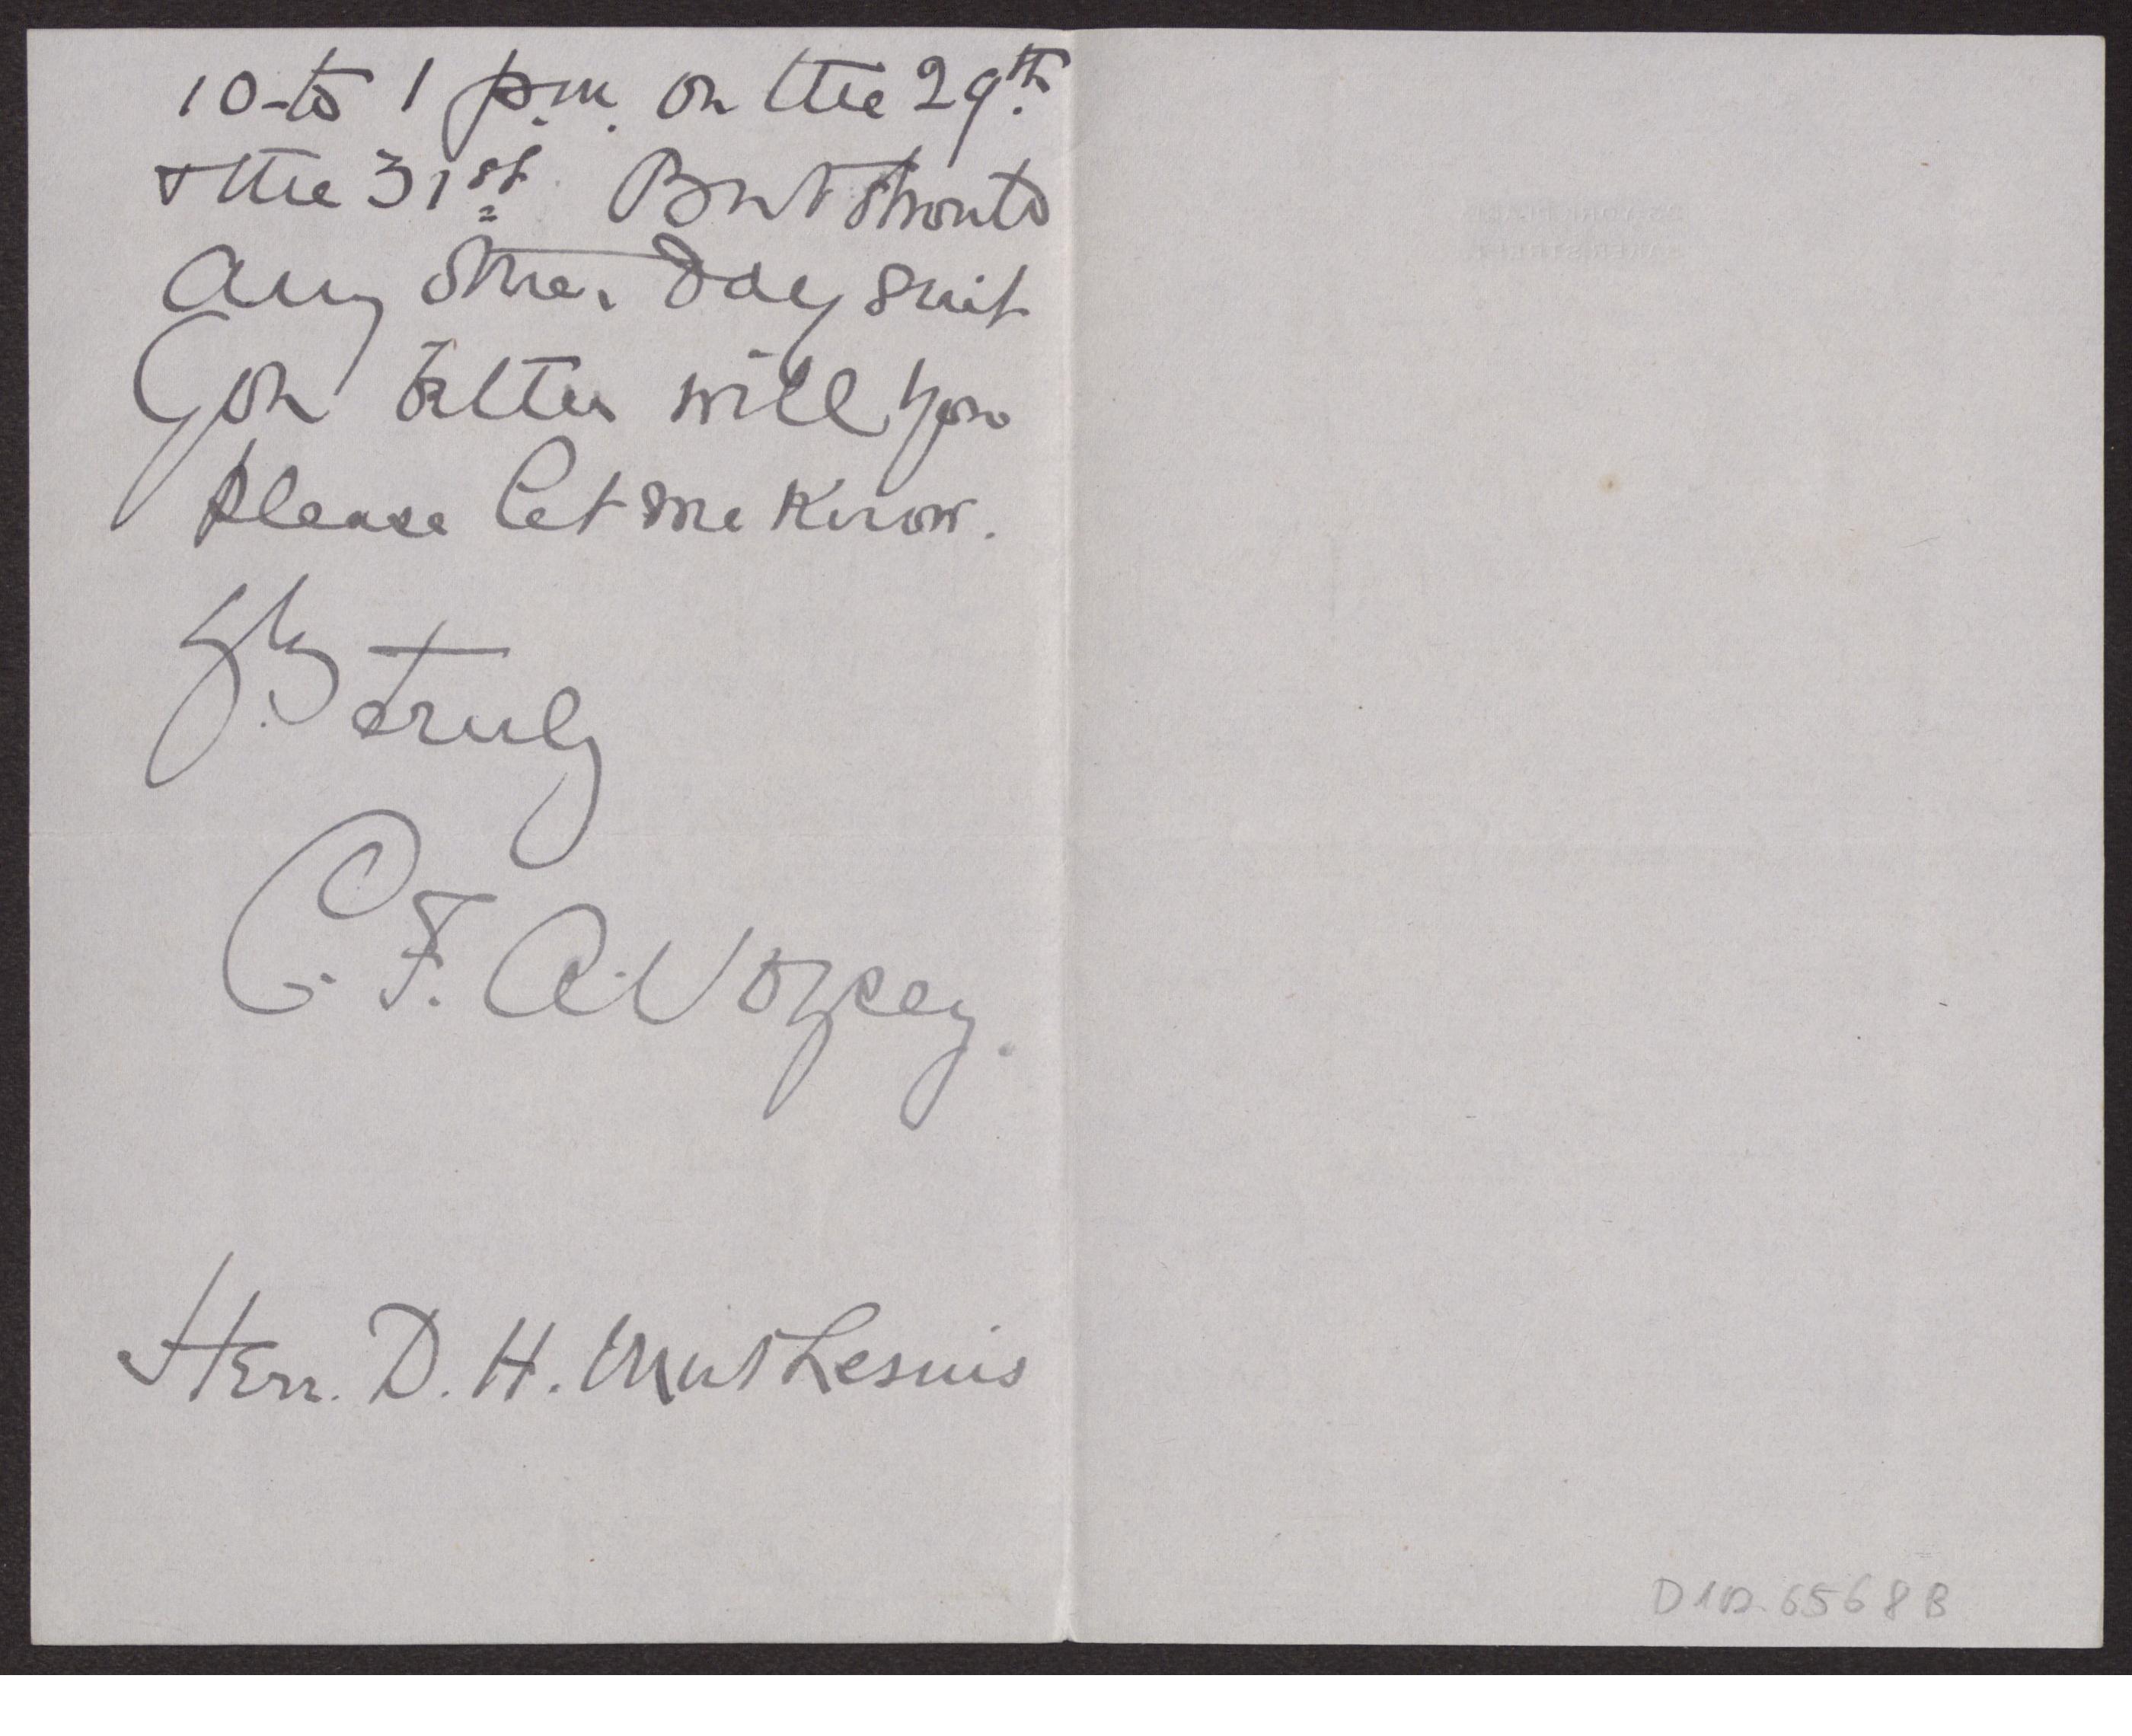 10 to 1 p.m. on the 29th.
& the 31st. But should
any other day suit
you better will you
please let me know.
Yrs. truly
C. F. A. Voysey.
Herr. D. H. Muthesuis
D 102. 6568 B